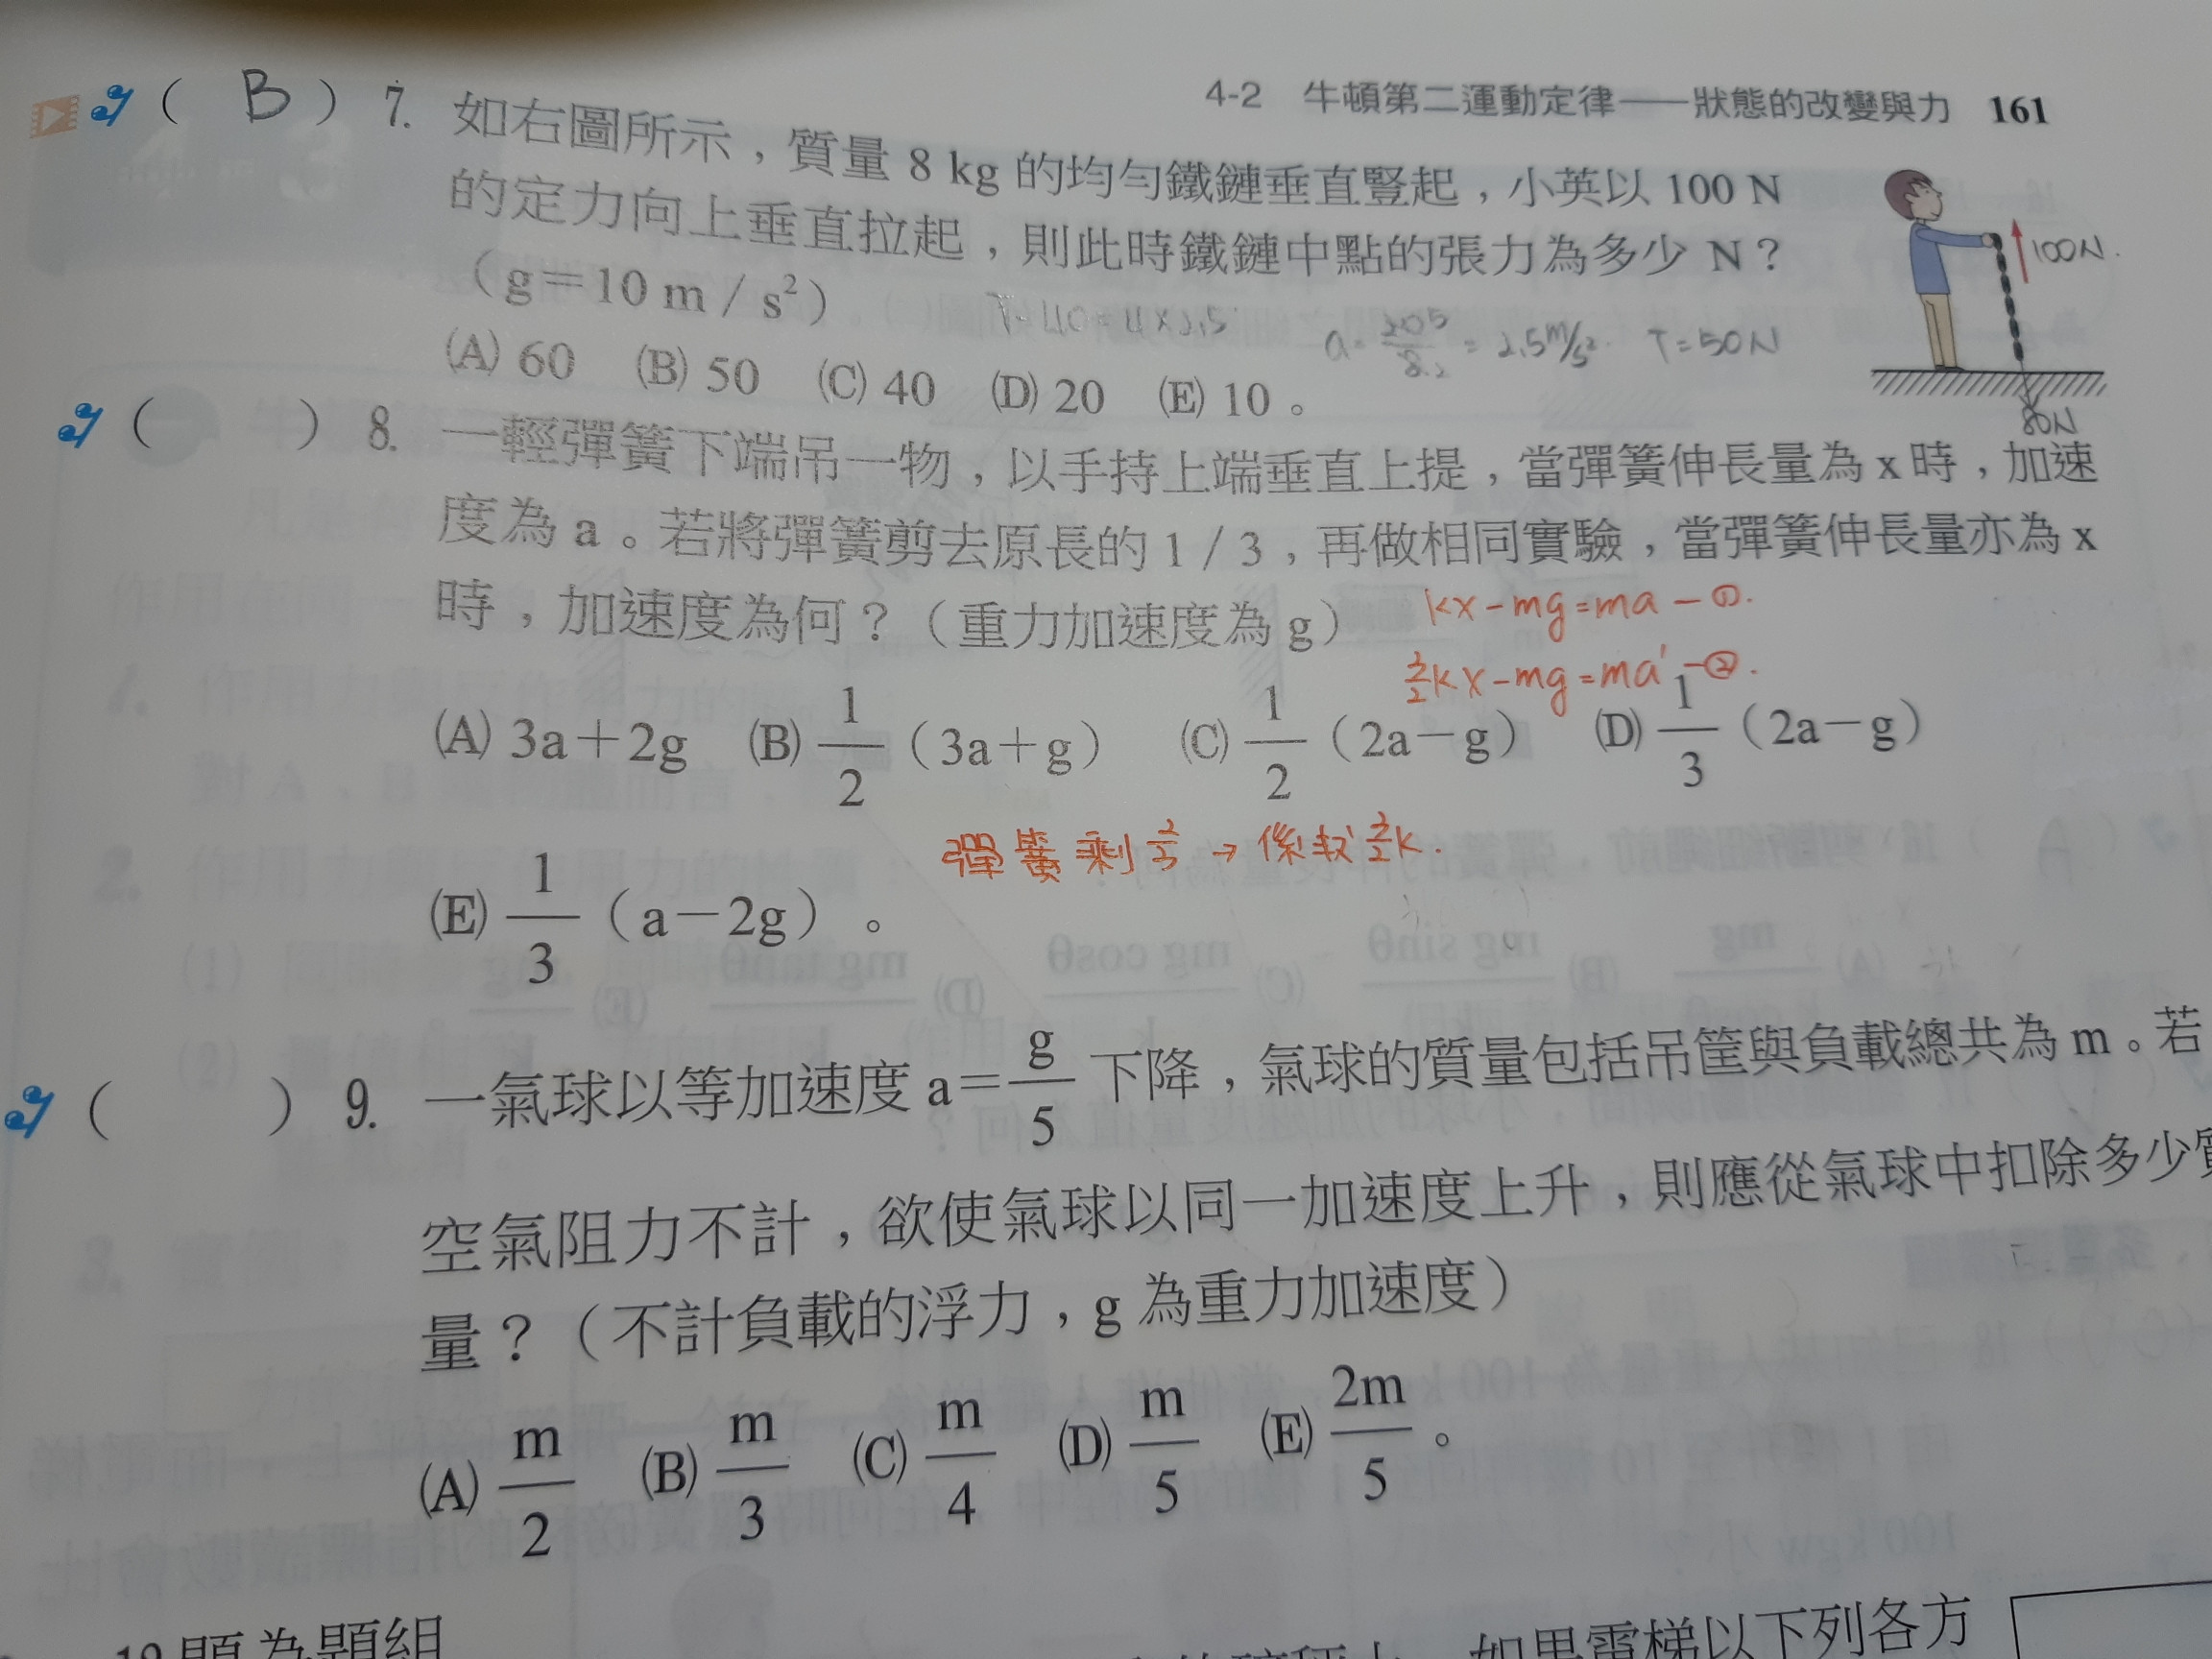 4-2 牛頓第二運動定律——狀態的改變與力 161
( B ) 7. 如右圖所示，質量 8 kg 的均勻鐵鏈垂直豎起，小英以 100 N
的定力向上垂直拉起，則此時鐵鏈中點的張力為多少 N？
（g＝10 m / s²）
T-40=4×2.5
a= 20 5 / 8 2 = 2.5m/s² T=50N
100N
80N
(A) 60 (B) 50 (C) 40 (D) 20 (E) 10 。
( ) 8. 一輕彈簧下端吊一物，以手持上端垂直上提，當彈簧伸長量為 x 時，加速
度為 a。若將彈簧剪去原長的 1 / 3，再做相同實驗，當彈簧伸長量亦為 x
時，加速度為何？（重力加速度為 g）
kx-mg=ma-①.
3/2kx-mg=ma'-②.
(A) 3a＋2g (B) 1/2（3a＋g） (C) 1/2（2a－g） (D) 1/3（2a－g）
彈簧剩2/3→係數3/2k.
(E) 1/3（a－2g）。
( ) 9. 一氣球以等加速度 a＝g/5 下降，氣球的質量包括吊筐與負載總共為 m。若
空氣阻力不計，欲使氣球以同一加速度上升，則應從氣球中扣除多少質
量？（不計負載的浮力，g 為重力加速度）
(A) m/2 (B) m/3 (C) m/4 (D) m/5 (E) 2m/5 。
題為題組
如果電梯以下列各方